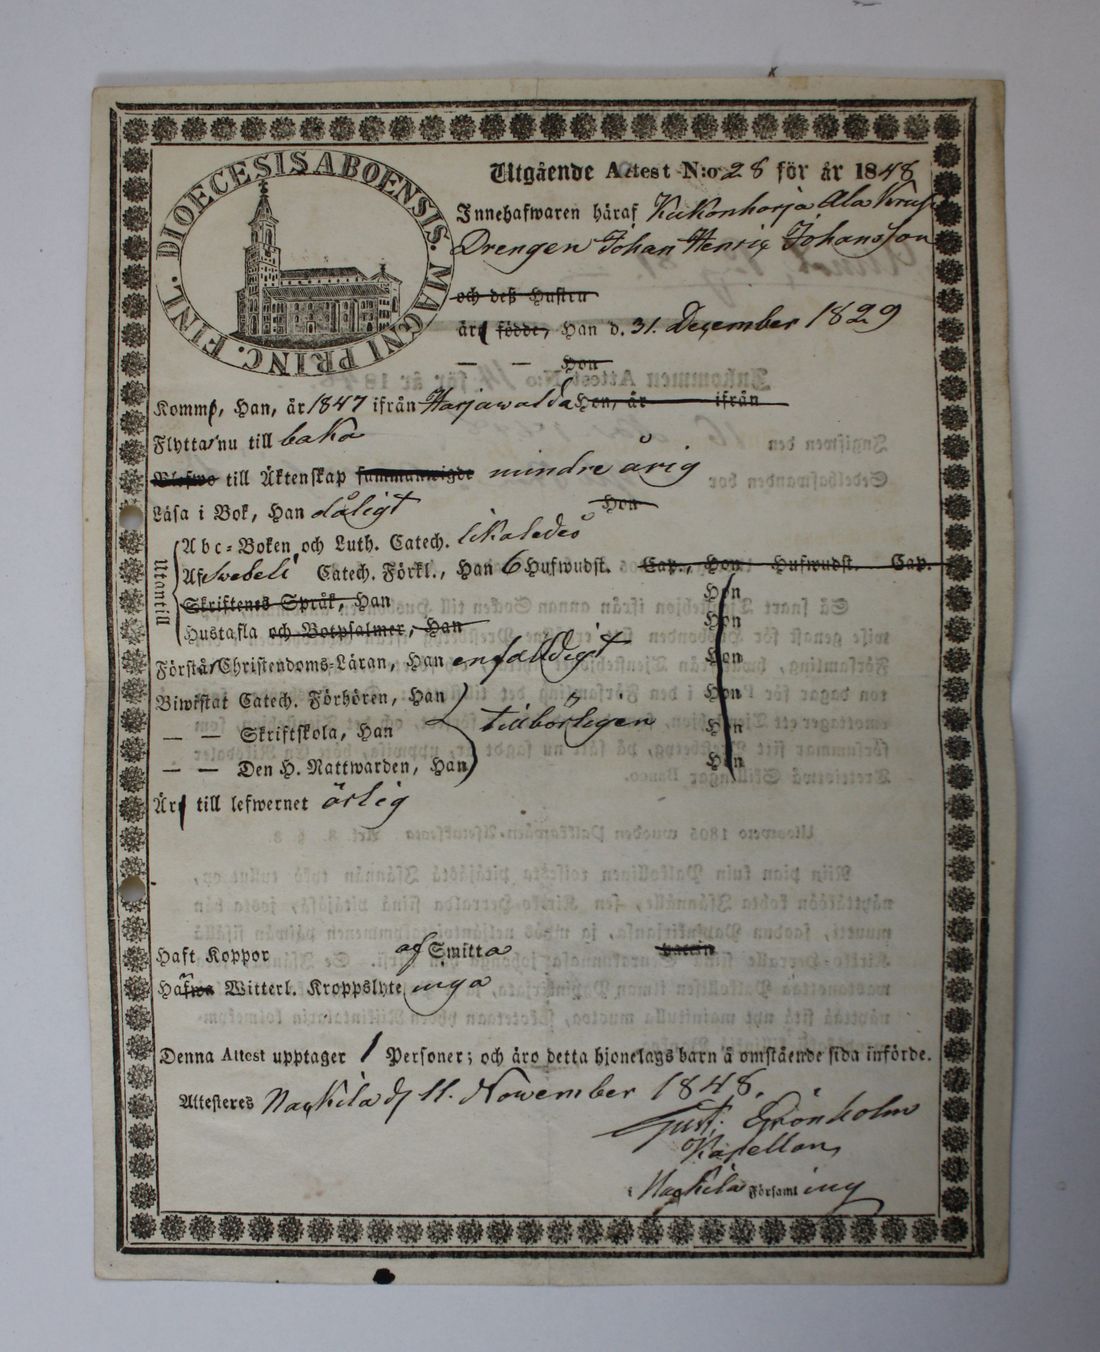 DIOECESIS ABOENSIS. MAGNI PRINC. FINL.
Utgående Attest N:o 28 för år 1848
Innehafwaren häraf Kukonharja Ala
Drengen Johan Henric Johansson
och deß Hustru
äro födde, Han d. 31. December 1829
— — Hon
Komm, Han, år 1847 ifrån Harjawalda Hon, år ifrån
Flytta nu till baka
till Äktenskap mindre årig
Läsa i Bok, Han dåligt Hon
Utantill
Abc-Boken och Luth. Catech. likaledes
Af Svebeli Catech. Förkl., Han 6 Hufwudst. Cap., Hon Hufwudst. Cap.
Skriftenes Språk, Han Hon
Hustafla och Botpsalmer, Han Hon
Förstår Christendoms-Läran, Han enfaldigt Hon
Biwistat Catech. Förhören, Han Hon
— — Skriftskola, Han tillbörligen Hon
— — Den H. Nattwarden, Han Hon
Är till lefwernet ärlig
Haft Koppor af Smitta
Witterl. Kroppslyte inga
Denna Attest upptager 1 Personer; och äro detta hjonelags barn å omstående sida införde.
Attesteres Nackila d 11. November 1848.
Gust. Grönholm
Kapellan
i Nackila Församling